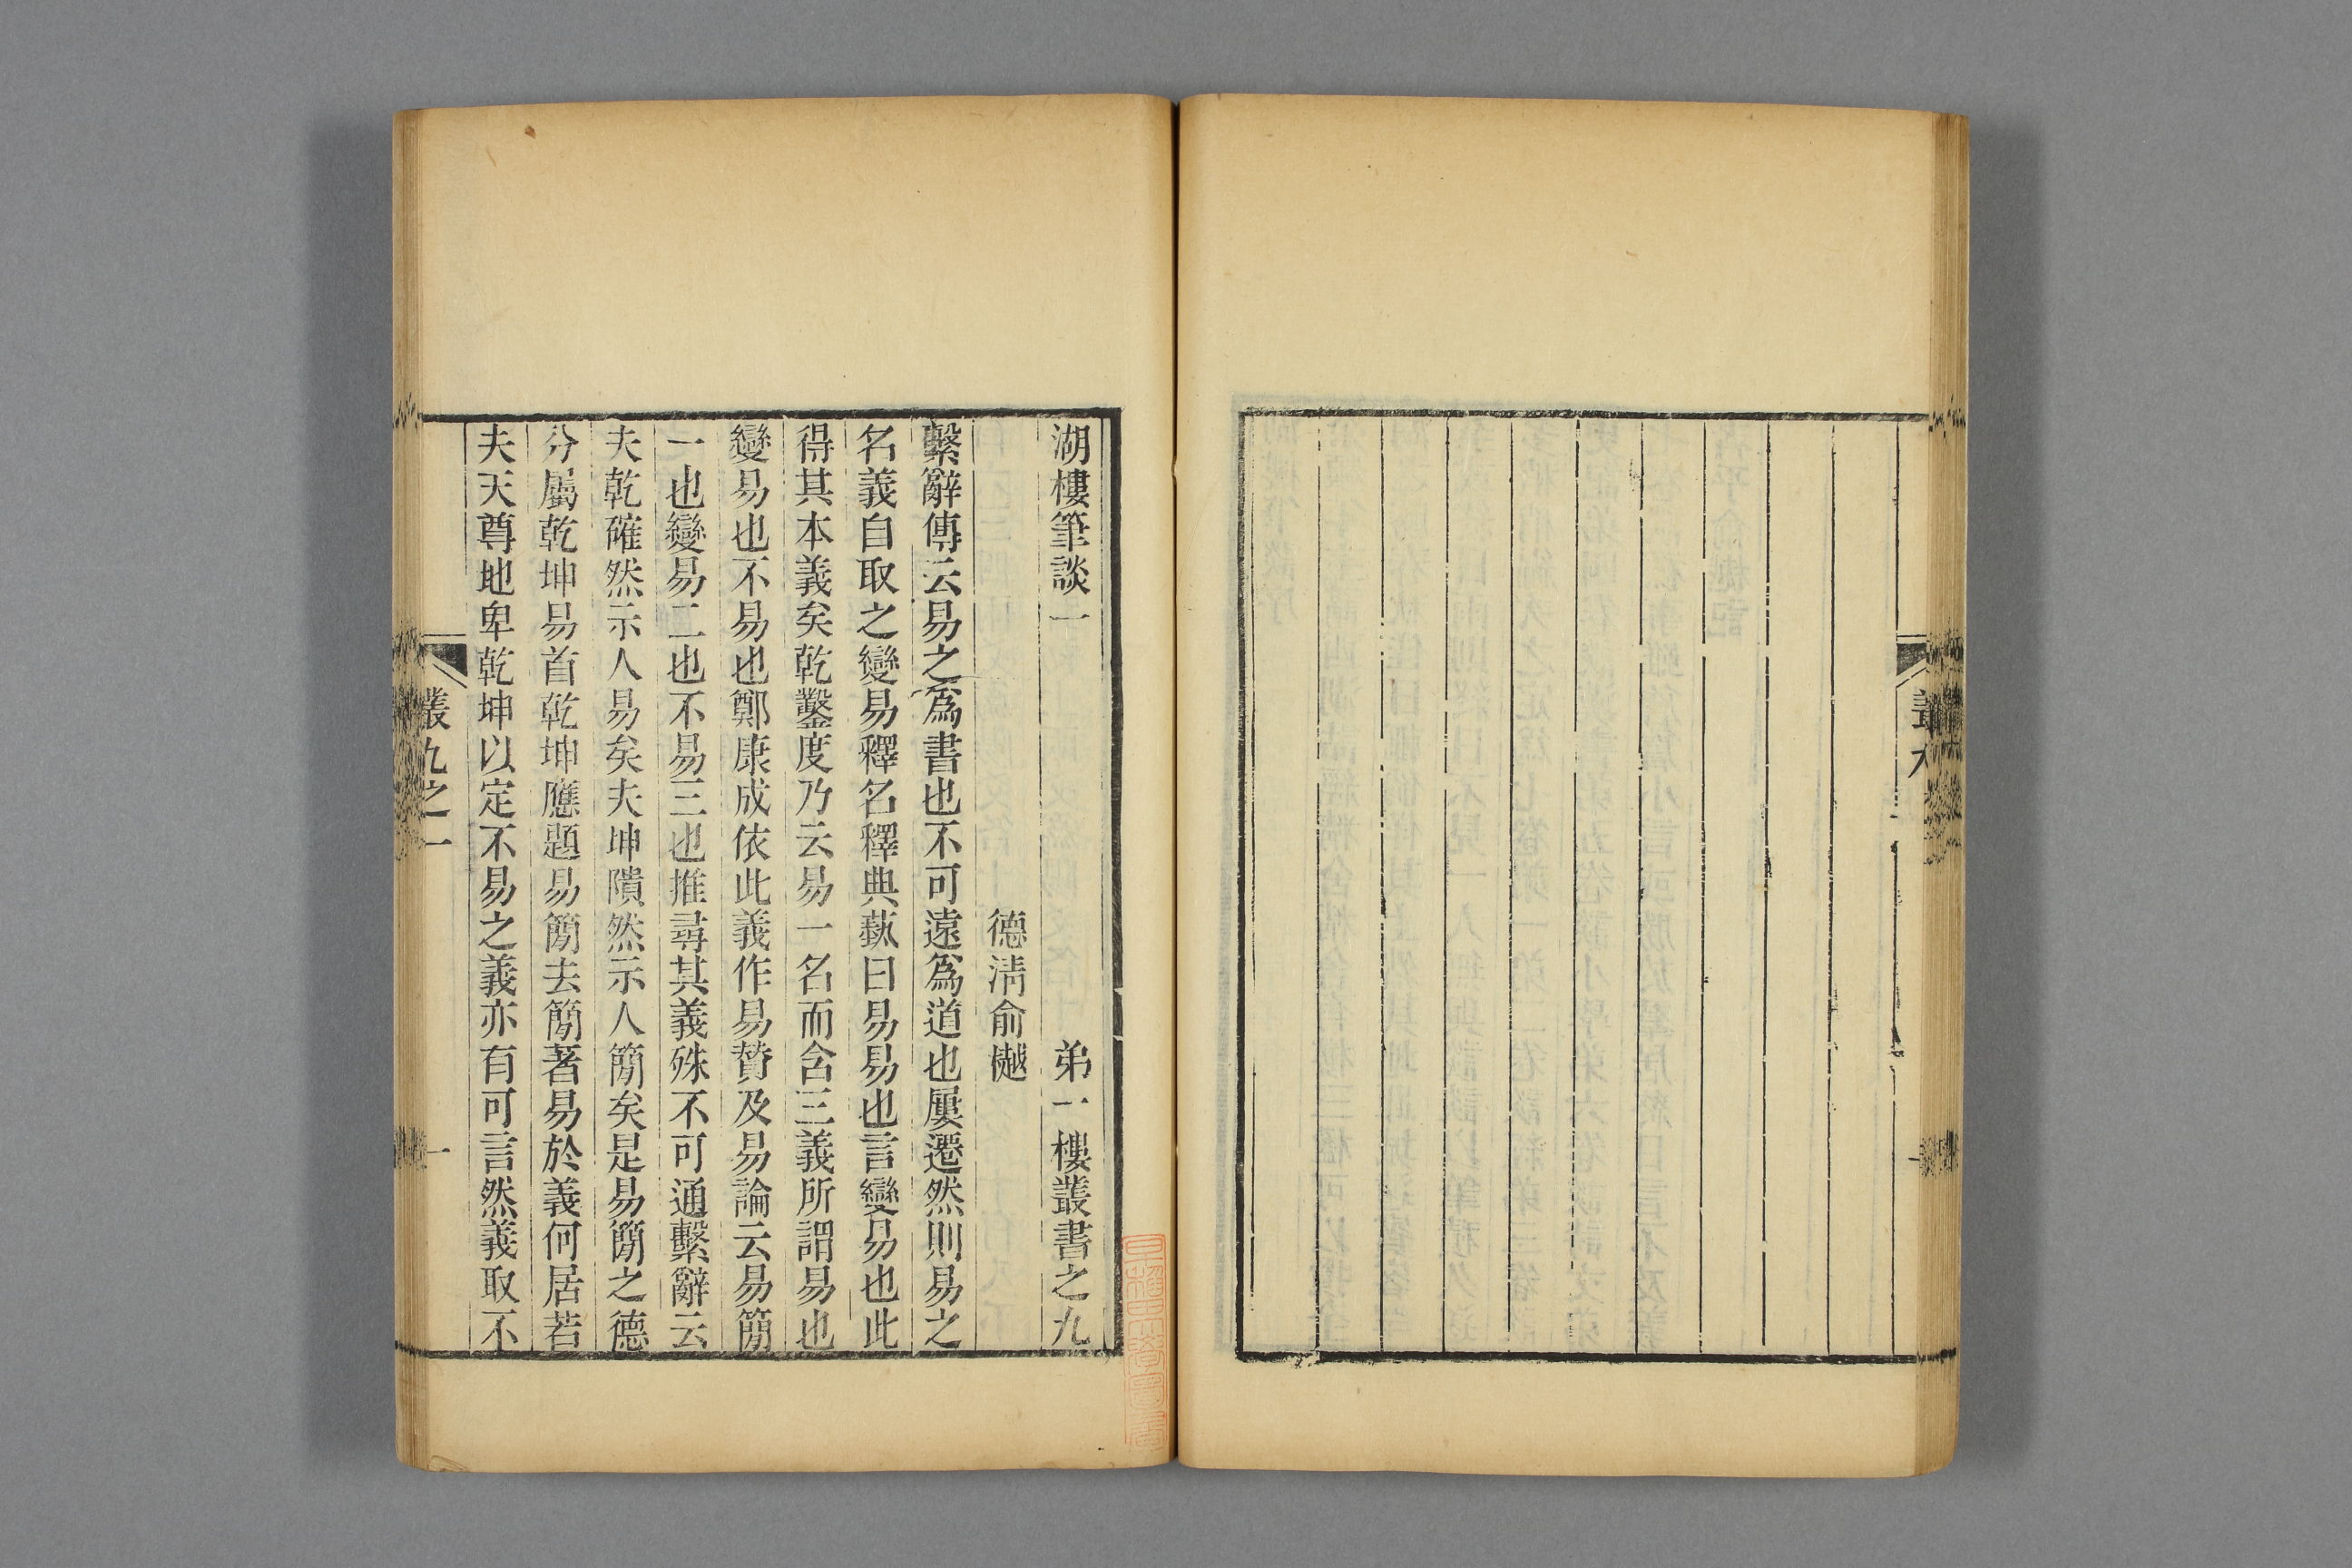 叢九
湖樓筆談一　弟一樓叢書之九
德淸俞樾
繫辭傳云易之爲書也不可遠爲道也屢遷然則易之
名義自取之變易釋名釋典蓺曰易易也言變易也此
得其本義矣乾鑿度乃云易一名而含三義所謂易也
變易也不易也鄭康成依此義作易贊及易論云易簡
一也變易二也不易三也推尋其義殊不可通繫辭云
夫乾確然示人易矣夫坤隤然示人簡矣是易簡之德
分屬乾坤易首乾坤應題易簡去簡著易於義何居若
夫天尊地卑乾坤以定不易之義亦有可言然義取不
叢九之一
一